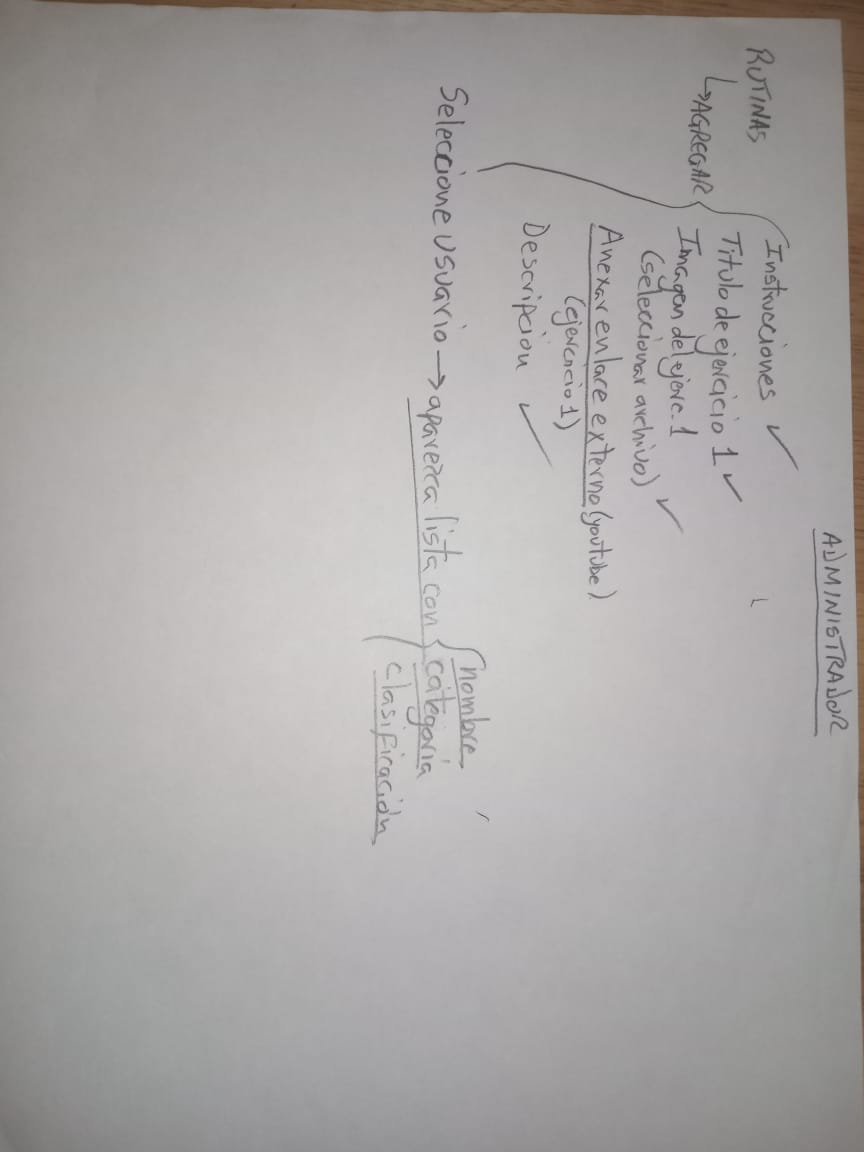 ADMINISTRADOR
RUTINAS
↳AGREGAR
Instrucciones ✓
Titulo de ejercicio 1 ✓
Imagen del ejerc. 1
(seleccionar archivo) ✓
Anexar enlace externo (youtube)
(ejercicio 1)
Descripcion ✓
Seleccione usuario → aparezca lista con
nombre
categoría
clasificación